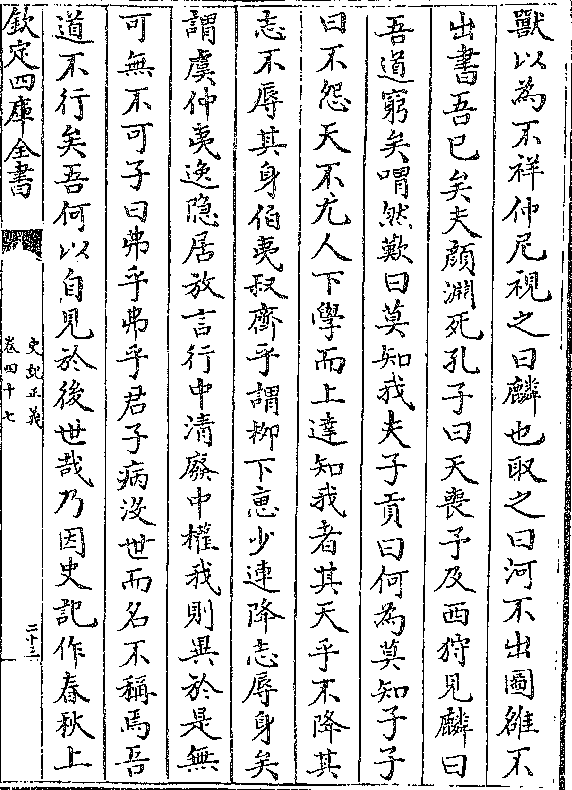 獸以為不祥仲尼視之曰麟也取之曰河不出圖雒不
出書吾已矣夫顏淵死孔子曰天喪予及西狩見麟曰
吾道窮矣喟然歎曰莫知我夫子貢曰何為莫知子子
曰不怨天不尤人下學而上達知我者其天乎不降其
志不辱其身伯夷叔齊乎謂柳下惠少連降志辱身矣
謂虞仲夷逸隱居放言行中清廢中權我則異於是無
可無不可子曰弗乎弗乎君子病沒世而名不稱焉吾
道不行矣吾何以自見於後世哉乃因史記作春秋上
欽定四庫全書
史記正義
卷四十七
二十三